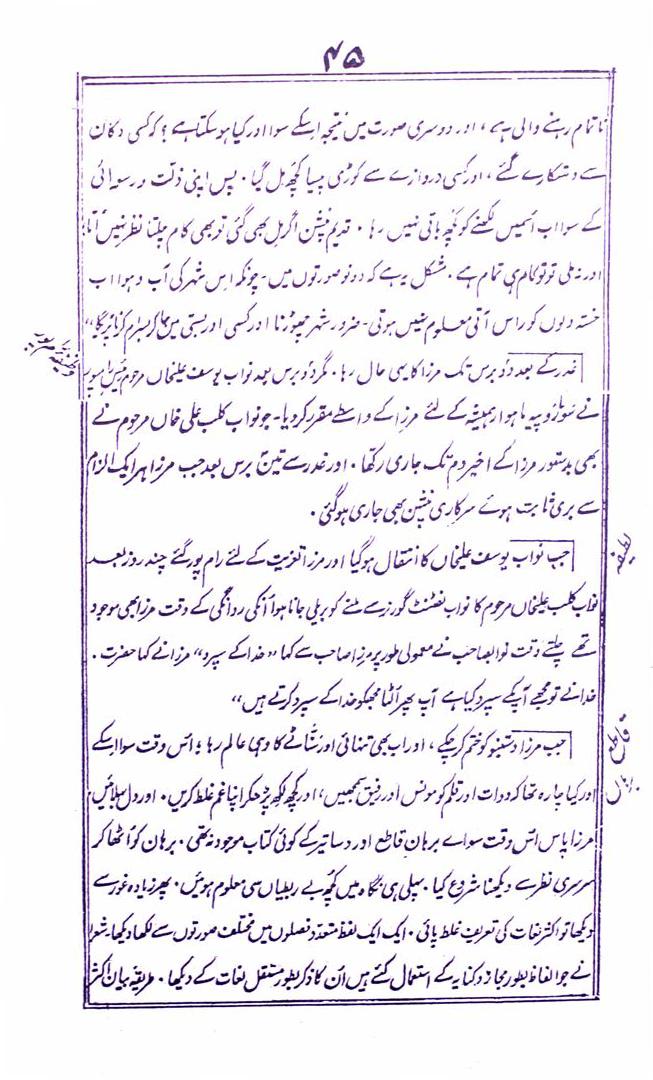 ۴۵
ناتمام رہنے والی ہے، اور دوسری صورت میں نتیجہ اسکے سوا اور کیا ہو سکتا ہے؟ کہ کسی دکان
سے دھتکارے گئے، اور کسی دروازے سے کوڑی پیسا کچھ مل گیا۔ پس اپنی ذلت و رسوائی
کے سوا اب اسمیں لکھنے کو کچھ باقی نہیں رہا۔ قدیم پنشن اگر مل بھی گئی تو بھی کام چلتا نظر نہیں آتا؛
اور نہ ملی تو تو کام ہی تمام ہے۔ مشکل یہ ہے کہ دونو صورتوں میں۔ چونکہ اس شہر کی آب و ہوا اب
خستہ دلوں کو راس آتی معلوم نہیں ہوتی۔ ضرور شہر چھوڑنا اور کسی اور بستی میں جا کر بسرام کرنا پڑیگا"
غدر کے بعد دو برس تک مرزا کا یہی حال رہا۔ مگر دو برس بعد نواب یوسف علیخاں مرحوم رئیس رامپور
نے سو روپیہ ماہوار ہمیشہ کے لئے مرزا کے واسطے مقرر کر دیا۔ جو نواب کلب علی خاں مرحوم نے
بھی بدستور مرزا کے اخیر دم تک جاری رکھا۔ اور غدر سے تین برس بعد جب مرزا ہر ایک الزام
سے بری ثابت ہوئے سرکاری پنشن بھی جاری ہو گئی۔
لطیفہ
جب نواب یوسف علیخاں کا انتقال ہو گیا اور مرزا تعزیت کے لئے رام پور گئے چند روز بعد
نواب کلب علیخاں مرحوم کا نواب لفٹنٹ گورنر سے ملنے کو بریلی جانا ہوا اُنکی روانگی کے وقت مرزا بھی موجود
تھے چلتے وقت نوابصاحب نے معمولی طور پر مرزا صاحب سے کہا "خدا کے سپرد" مرزا نے کہا حضرت۔
خدا نے تو مجھے آپکے سپرد کیا ہے آپ پھر اُلٹا مجھکو خدا کے سپرد کرتے ہیں"
قاطع برہان
جب مرزا دستنبو کو ختم کر چکے، اور اب بھی تنہائی اور سنّاٹے کا وہی عالم رہا؛ اُس وقت سوا اسکے
اور کیا چارہ تھا کہ دوات اور قلم کو مونس اور رفیق سمجھیں، اور کچھ لکھ پڑھ کر اپنا غم غلط کریں۔ اور دل بہلائیں،
مرزا پاس اُس وقت سواے برہان قاطع اور دساتیر کے کوئی کتاب موجود نہ تھی۔ برہان کو اُٹھا کر
سرسری نظر سے دیکھنا شروع کیا۔ پہلی ہی نگاہ میں کچھ بے ربطیاں سی معلوم ہوئیں۔ پھر زیادہ غور سے
دیکھا تو اکثر لغات کی تعریف غلط پائی۔ ایک ایک لفظ متعدد فصلوں میں مختلف صورتوں سے لکھا دیکھا۔ شعرا
نے جو الفاظ بطور مجاز و کنایہ کے استعمال کئے ہیں اُن کا ذکر بطور مستقل لغات کے دیکھا۔ طریقۂ بیان اکثر